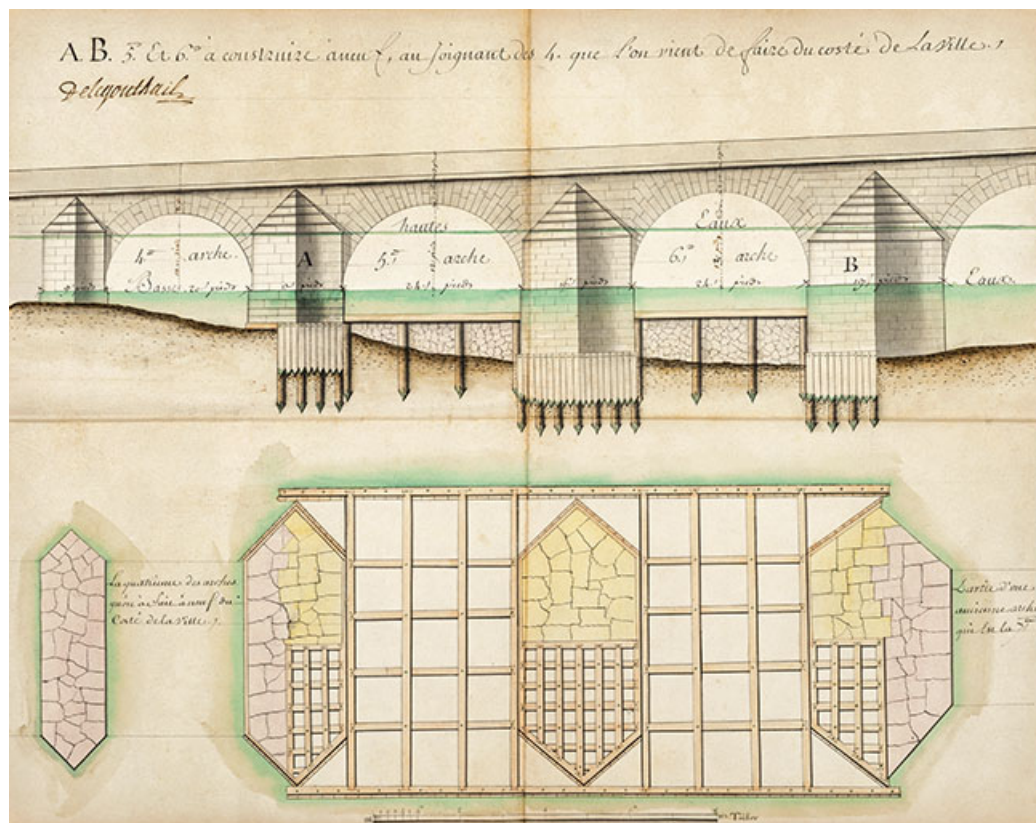 A. B. 5.e Et 6.e à construire à neuf, au joignant des 4. que l'on vient de faire du costé de La Ville.
hautes
Eaux
4.e arche.
A
5.e arche
6.e arche
B
Basse
pieds
pieds
24 pieds
pieds
24 pieds
19 pieds
Eaux.
La quatrieme des arches
qu'on a fait à neuf du
Coté de la Ville
Partie d'une
ancienne arche
qui est la 7.e
Toises